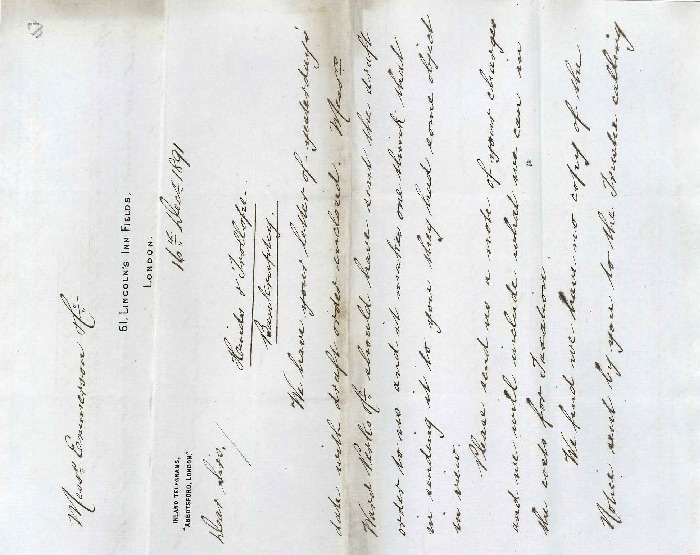 61, LINCOLN'S INN FIELDS,
LONDON.
16th Decr 1891
INLAND TELEGRAMS,
"ABBOTSFORD, LONDON."
Dear Sirs,
& Trollope.
Bankruptcy.
We have your letter of yesterdays
date with draft order enclosed. Messrs
Ward Perks &c should have sent the draft
order to us and it makes one think that
in sending it to you they had some object
in view.
Please send us a note of your charges
and we will include what we can in
the costs for Taxation.
We find we have no copy of the
Notice sent by you to the Trustee calling
Messrs Emmerson &c